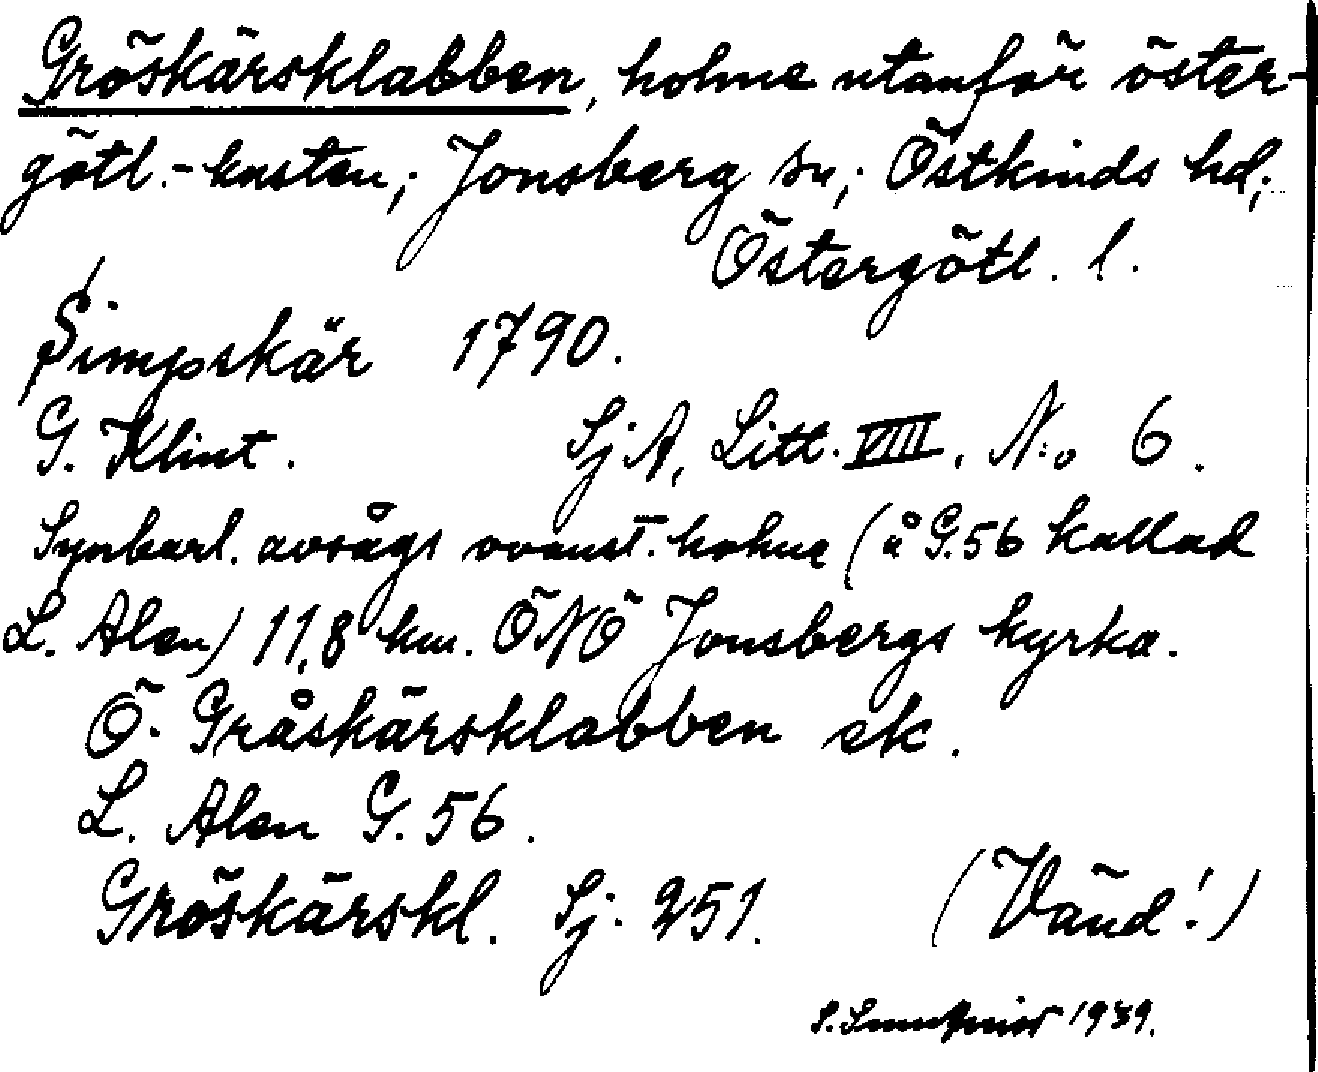 Gröskärsklabben, holme utanför öster-
götl.-kusten; Jonsberg sn; Östkinds hd;
Östergötl. l.
Simpskär 1790.
G. Klint. SjA, Litt. VIII, N:o 6.
Synbarl. avsågs ovanst. holme (å G.56 kallad
L. Alen) 11,8 km. ÖNÖ Jonsbergs kyrka.
Ö. Gråskärsklabben ek.
L. Alen G. 56.
Gröskärskl. Sj. 251. (Vänd!)
S. 1939.